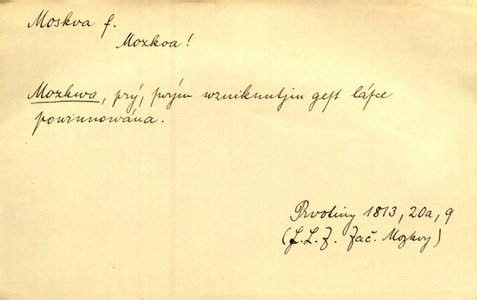 Moskva f.
Mozkva!
Mozkwa, prý, swým wzniknutjm gest lásce
powinnowána.
Prvotiny 1813, 20a, 9
(J. L. Z. Zač. Mozkvy)